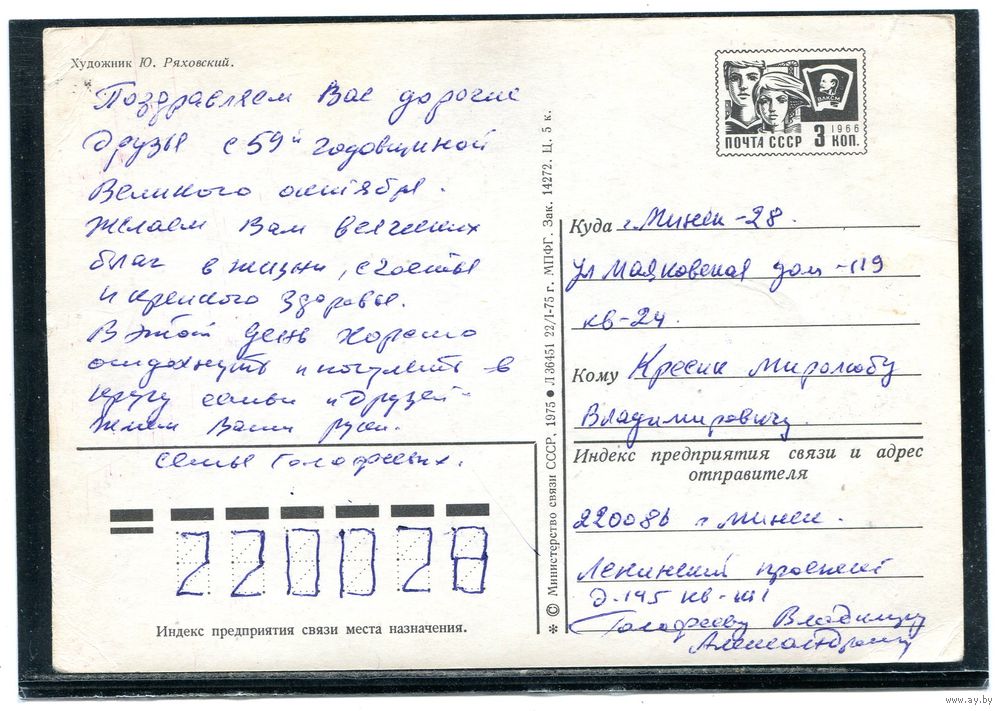 Художник Ю. Ряховский.
Поздравляем Вас дорогие
друзья с 59й годовщиной
Великого октября.
Желаем Вам всяческих
благ в жизни, счастья
и крепкого здоровья.
В этот день хорошо
отдохнуть и погулять в
кругу семьи и друзей
Жмем Ваши руки.
семья Голофаевых.
220028
Индекс предприятия связи места назначения.
✻ © Министерство связи СССР, 1975 ● Л 36451 22/I-75 г. МПФГ. Зак. 14272. Ц. 5 к.
ВЛКСМ
1966
ПОЧТА СССР 3 КОП.
Куда г. Минск-28.
ул Маяковская дом-119
кв-24.
Кому Кресик Миролюбу
Владимировичу.
Индекс предприятия связи и адрес
отправителя
220086 г Минск.
Ленинский проспект
д.145 кв-
Голофаеву Владимиру
Александровичу
www.ay.by